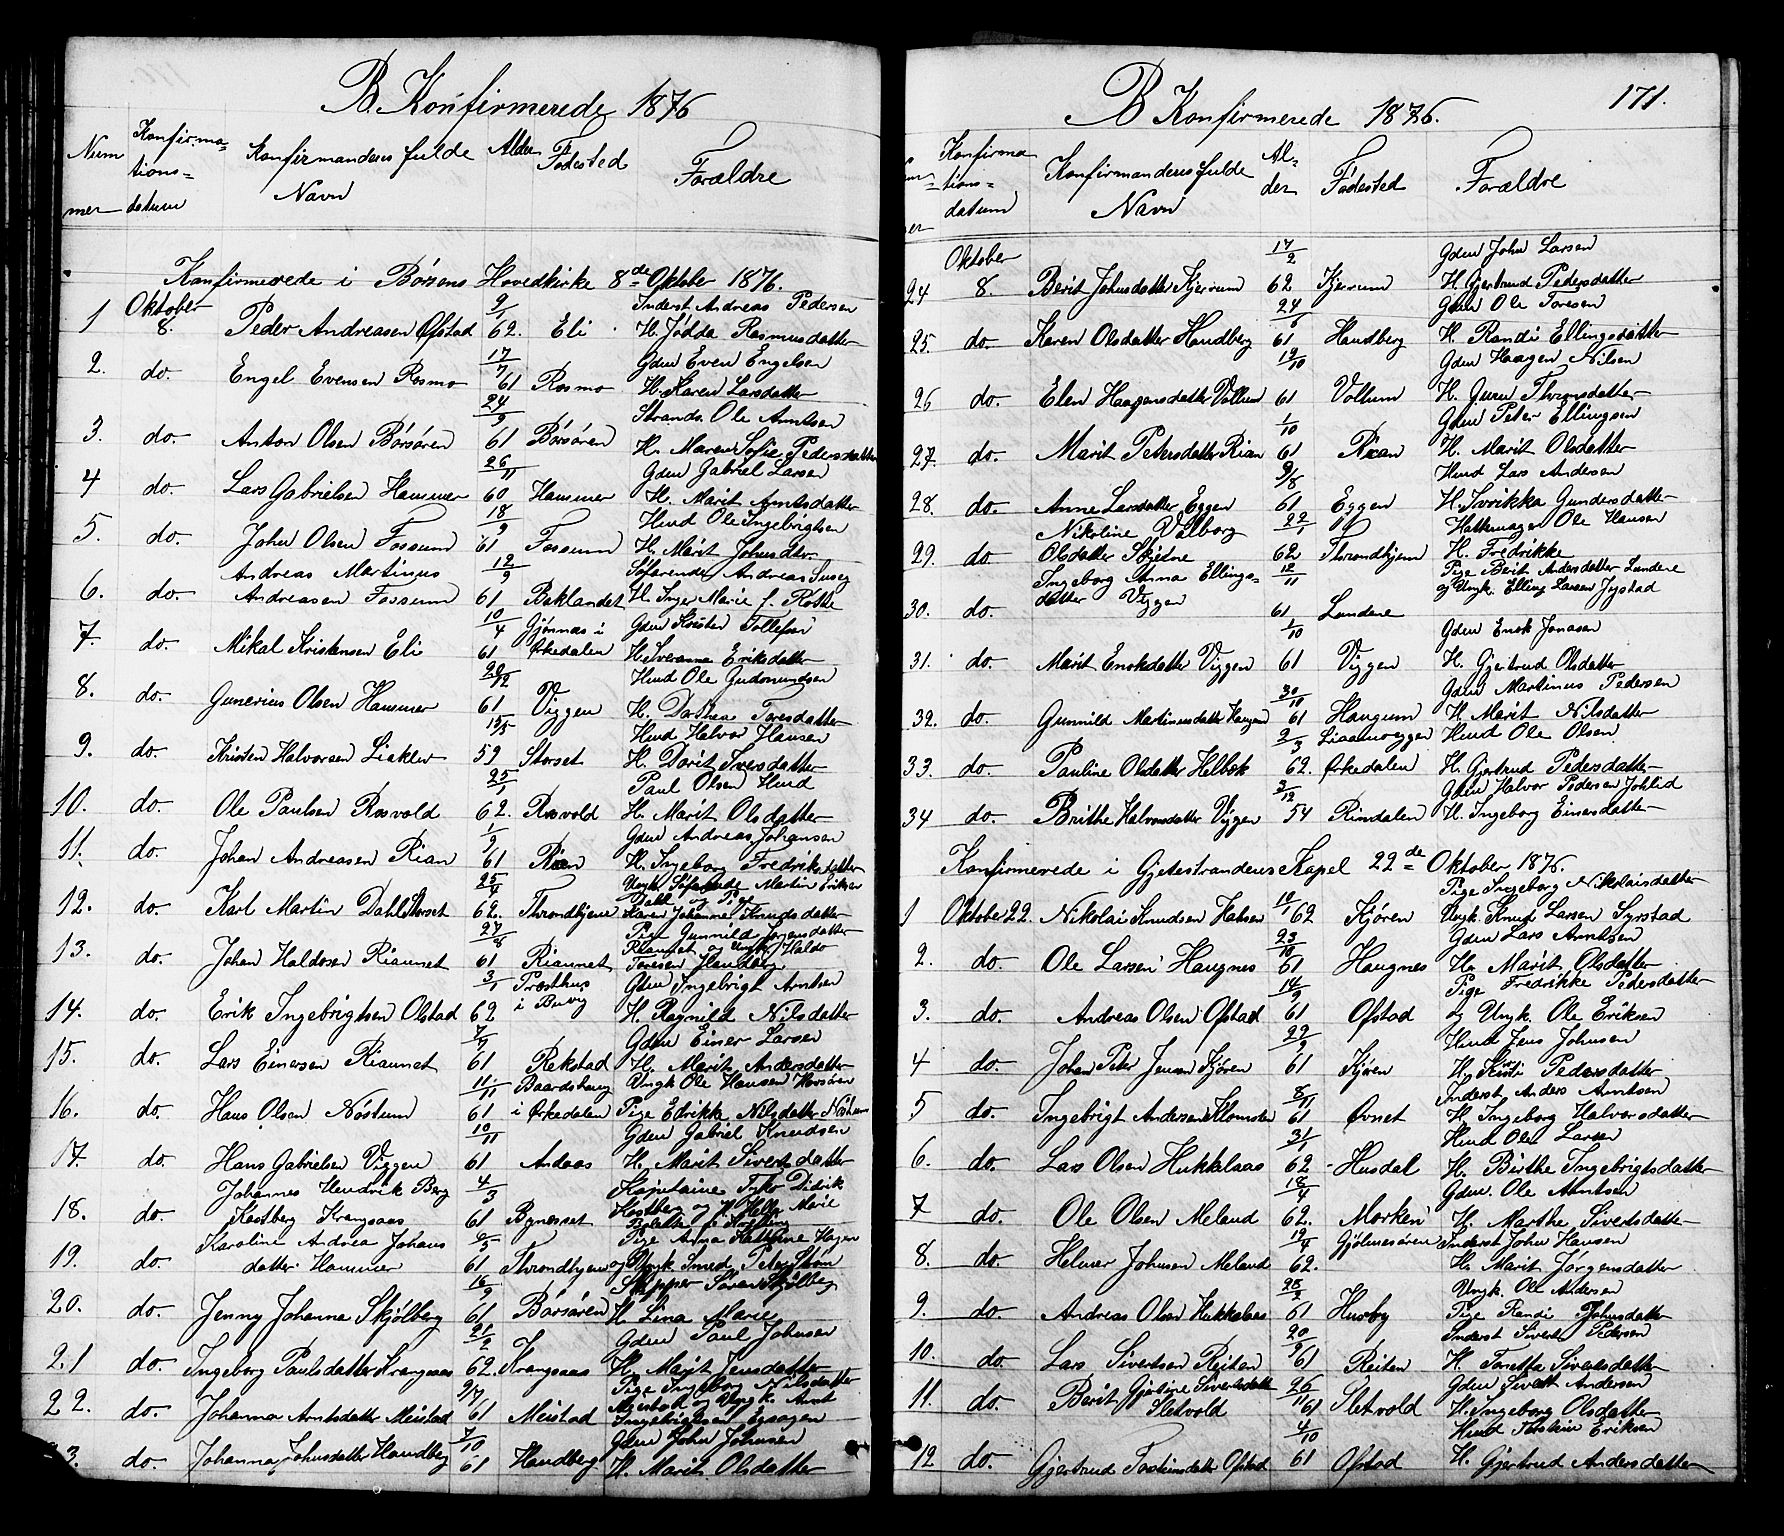 B. Konfirmerede 1876
Nummer Konfirmationsdatum Konfirmandens fulde Navn Alder Fødested Forældre
Konfirmerede i Børsens Hovedkirke 8de Oktober 1876.
1 Oktober 8. Peder Andreasen Øfstad 9/1 62. Eli Inderst Andreas Pedersen H. Jødda Rasmusdatter
2. do. Engel Evensen Rosmo 17/7 61 Rosmo Gdm Even Engelsen H. Karen Larsdatter
3. do. Anton Olsen Børsøren 24/9 61 Børsøren Strands. Ole Arntsen H. Maren Sofie Pedersdatter
4 do. Lars Gabrielsen Hammer 26/11 60 Hammer Gdm Gabriel Larsen H. Marit Arntsdatter
5. do. John Olsen Fossum 18/9 61 Fossum Hmd Ole Ingebrigtsen H. Marit Johnsdter
6. do. Andreas Martinus Andreasen Fossum 12/9 61 Baklandet Søfarende Andreas H. Inger Marie f. Rothe
7. do. Mikal Kristensen Eli 10/4 61 Gjønnæs i Ørkedalen Gdm Kristen Tollefsen H. Eriksdatter
8. do. Gunerius Olsen Hammer 61 Viggen Hmd Ole Gudmundsen H. Dorthea Toresdatter
9. do. Kristen Halvorsen Liaklev 59 Storset Hmd Halvor Hansen H. Dorit Iversdatter
10. do. Ole Paulsen Rosvold 25/1 62. Rosvold Paul Olsen Hmd H. Marit Olsdatter
11. do. Johan Andreasen Rian 1/9 61 Rian Gdm Andreas Johansen H. Ingeborg Fredriksdatter
12. do. Karl Martin Dahl Storset 25/4 62. Throndhjem Ungk. Søfarende Martin Eriksen Dahl og Pige Karen Johanna Knudsdatter
13. do. Johan Haldosen Riaunet 27/8 61 Riaunet Pige Gunnild Jørgensdatter Riaunet og Ungk. Haldo Toresen Handberg
14. do. Erik Ingebrigtsen Olstad 3/1 62 Præsthus i Buvig Gdm Ingebrigt Arntsen H. Ragnild Nilsdatter
15. do. Lars Einersen Riaunet 7/7 61 Rekstad Gdm Einer Larsen H. Marit Andersdatter
16. do. Hans Olsen Nøstum 11/11 61 Baardshaug i Ørkedalen Ungk Ole Hansen Børsøren Pige Edrikke Nilsdatter Nøstum
17. do. Hans Gabrielsen Viggen 10/11 61 Andaas Gdm Gabriel Knudsen H. Marit Sivertsdatter
18. do. Johannes Hendrik Berg Kastberg Krangsaas 4/3 61 Bynesset Kapitaine Tyko Didrik Kastberg og H. Helle Marie Bolette f.
19. do. Karoline Andrea Johansdatter Hammer 61 Throndhjem Pige Anna Kathrine Hagen og Ungk Smed Peter Strøm
20. do. Jenny Johanna Skjølberg 16/9 61 Børsøren Skipper Søren Skjølberg H. Lina Marie
21 do. Ingeborg Paulsdatter Krangsaas 21/2 62 Krangsaas Gdm Paul Johnsen H. Marit Jensdatter
22. do. Johanna Arntsdatter Meistad 9/7 61 Meistad Pige Ingeborg Nilsdatter Meistad og Ungk. Arnt Ingebrigtsen
3. do. Johanna Johnsdatter Handberg 7/10 61 Handberg Gdm John Johnsen H. Marit Olsdatter
B Konfirmerede 1876. 171.
Konfirmationsdatum Konfirmandens fulde Navn Alder Fødested Forældre
24 Oktober 8. Berit Johnsdatter Kjerrum 17/2 62 Kjerrum Gdm John Larsen H. Gjertrud Pedersdatter
25. do. Karen Olsdatter Handberg 24/6 61 Handberg Gdm Ole Toresen H. Randi Ellingsdatter
26 do. Elen Haagensdatter Vollum 19/10 61 Vollum Gdm Haagen Nilsen H. Guru Thomsdatter
27. do. Marit Petersdatter Rian 1/10 61 Rian Gdm Peter Ellingsen H. Marit Olsdatter
28. do. Anne Larsdatter Eggen 9/8 61 Eggen Hmd Lars Andersen H. Gundersdatter
29. do Nikoline Valborg Olsdatter Skjetne 22/1 62 Throndhjem Hattemager Ole Hansen H. Fredrikke
30. do. Ingeborg Anna Ellingsdatter Viggen 12/11 61 Lundene Pige Berit Andersdatter Lundene og Ungk. Elling Larsen Jystad
31. do. Marit Enokdatter Viggen 1/10 61 Viggen Gdm Enok Jonasen H. Gjertrud Olsdatter
32. do. Gunnild Martinusdatter Haugum 61 Haugum Gdm Martinus Pedersen H. Marit Nilsdatter
33. do. Pauline Olsdatter Holbæk 2/3 62. Ørkedalen Hmd Ole Olsen H. Gjertrud Pedersdatter
34 do. Brithe Halvorsdatter Viggen 3/12 54 Rindalen Gdm Halvor Pedersen H. Ingeborg Einersdatter
Konfirmerede i Gjetestrandens Kapel 22de Oktober 1876.
1 Oktober 22. Nikolai Knudsen 62 Kjøren Pige Ingeborg Nikolaisdatter Ungk. Knud Larsen Syrstad
2. do. Ole Larsen Haugnes 23/10 61 Haugnes Gdm Lars Arntsen H. Marit Olsdatter
3. do. Andreas Olsen Ofstad 14/9 61 Ofstad Pige Fredrikke Pedersdatter og Ungk. Ole Eriksen
4 do. Johan Peter Jensen Kjøren 61 Kjøren Hmd Jens Johnsen H. Kirsti Pedersdatter
5 do. Ingebrigt Andersen Klomsten 8/11 61 Øvnet Inderst Anders Arntsen H. Ingeborg Halvorsdatter
6. do. Lars Olsen Hukkelaas 31/1 62 Husdal Hmd Ole Larsen H. Birthe Ingebrigtsdatter
7 do. Ole Olsen Meland 18/4 62. Morken Gdm. Ole Arntsen H. Marthe Sivertsdatter
8. do. Helmer Johnsen Meland 19/4 62. Gjølmesøren Inderst John Hansen H. Marit Jørgensdatter
9. do. Andreas Olsen Hukkelaas 61 Husby Ungk. Ole Andersen Pige Randi Johnsdatter
10. do. Lars Sivertsen Reiten 20/9 61 Reiten Inderst Sivert Pedersen H. Sivertsdatter
11. do. Berit Gjertine Sivertsdatter Sletvold 26/11 61 Sletvold Gdm Sivert Andersen H. Ingeborg Olsdatter
12 do. Gjertrud Torstensdatter Ofstad 4/10 61 Ofstad Hmd Torstein Eriksen H. Gjertrud Andersdatter